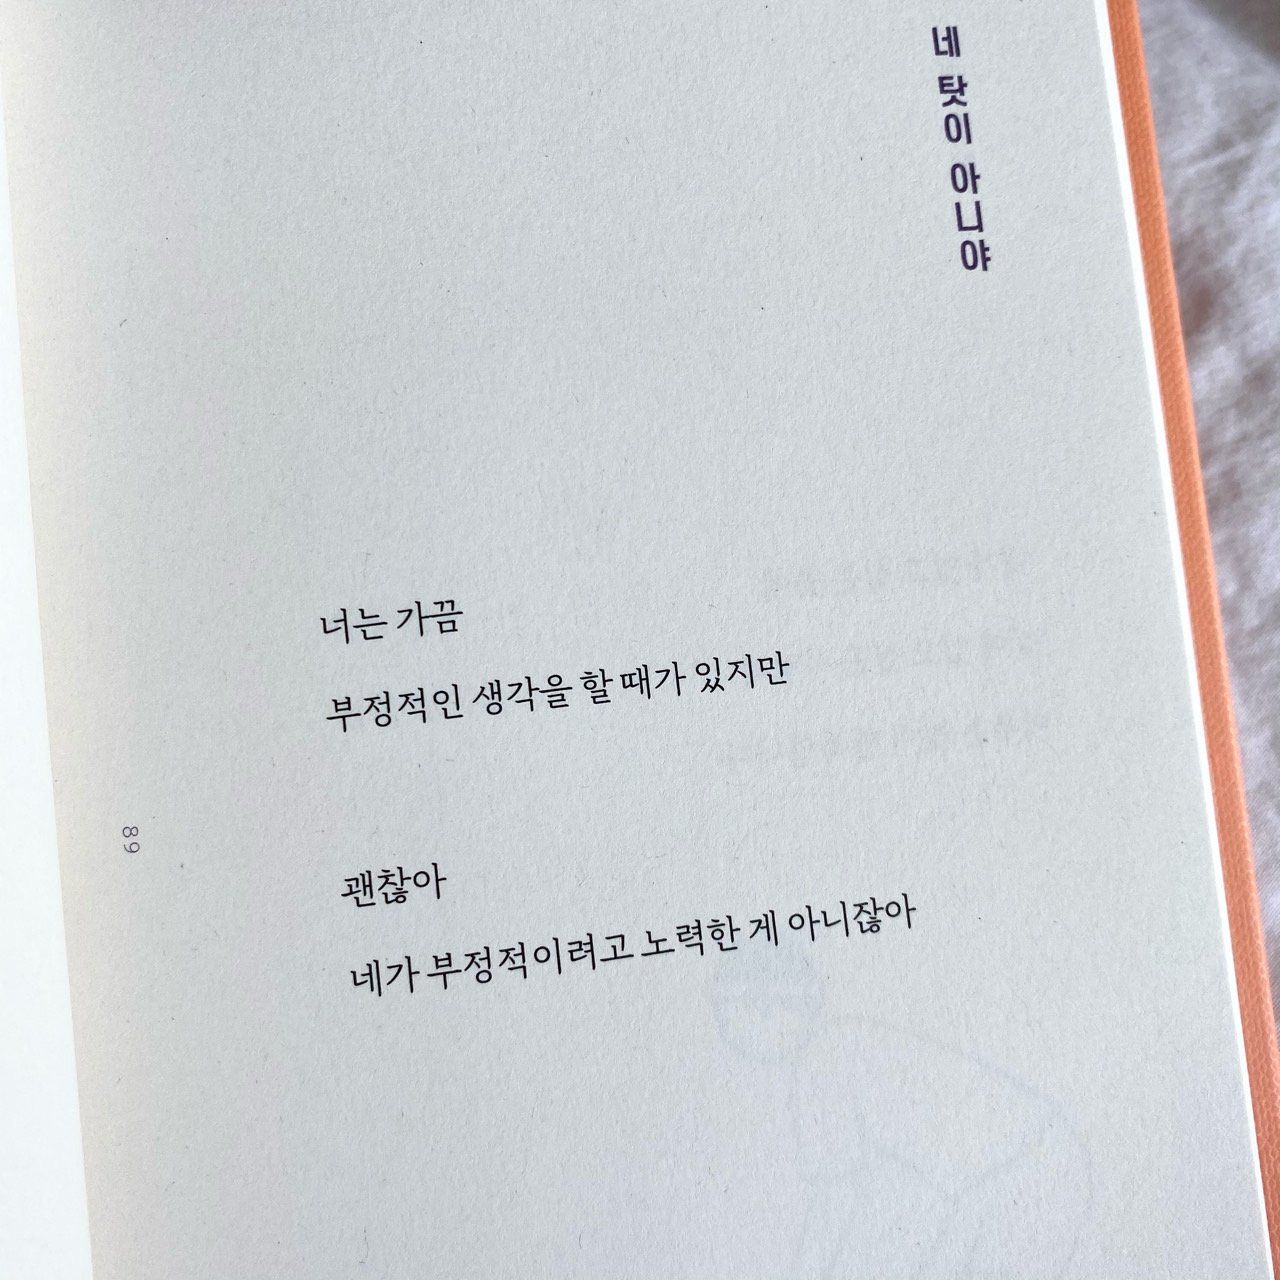 네 탓이 아니야
너는 가끔
부정적인 생각을 할 때가 있지만
괜찮아
네가 부정적이려고 노력한 게 아니잖아
89